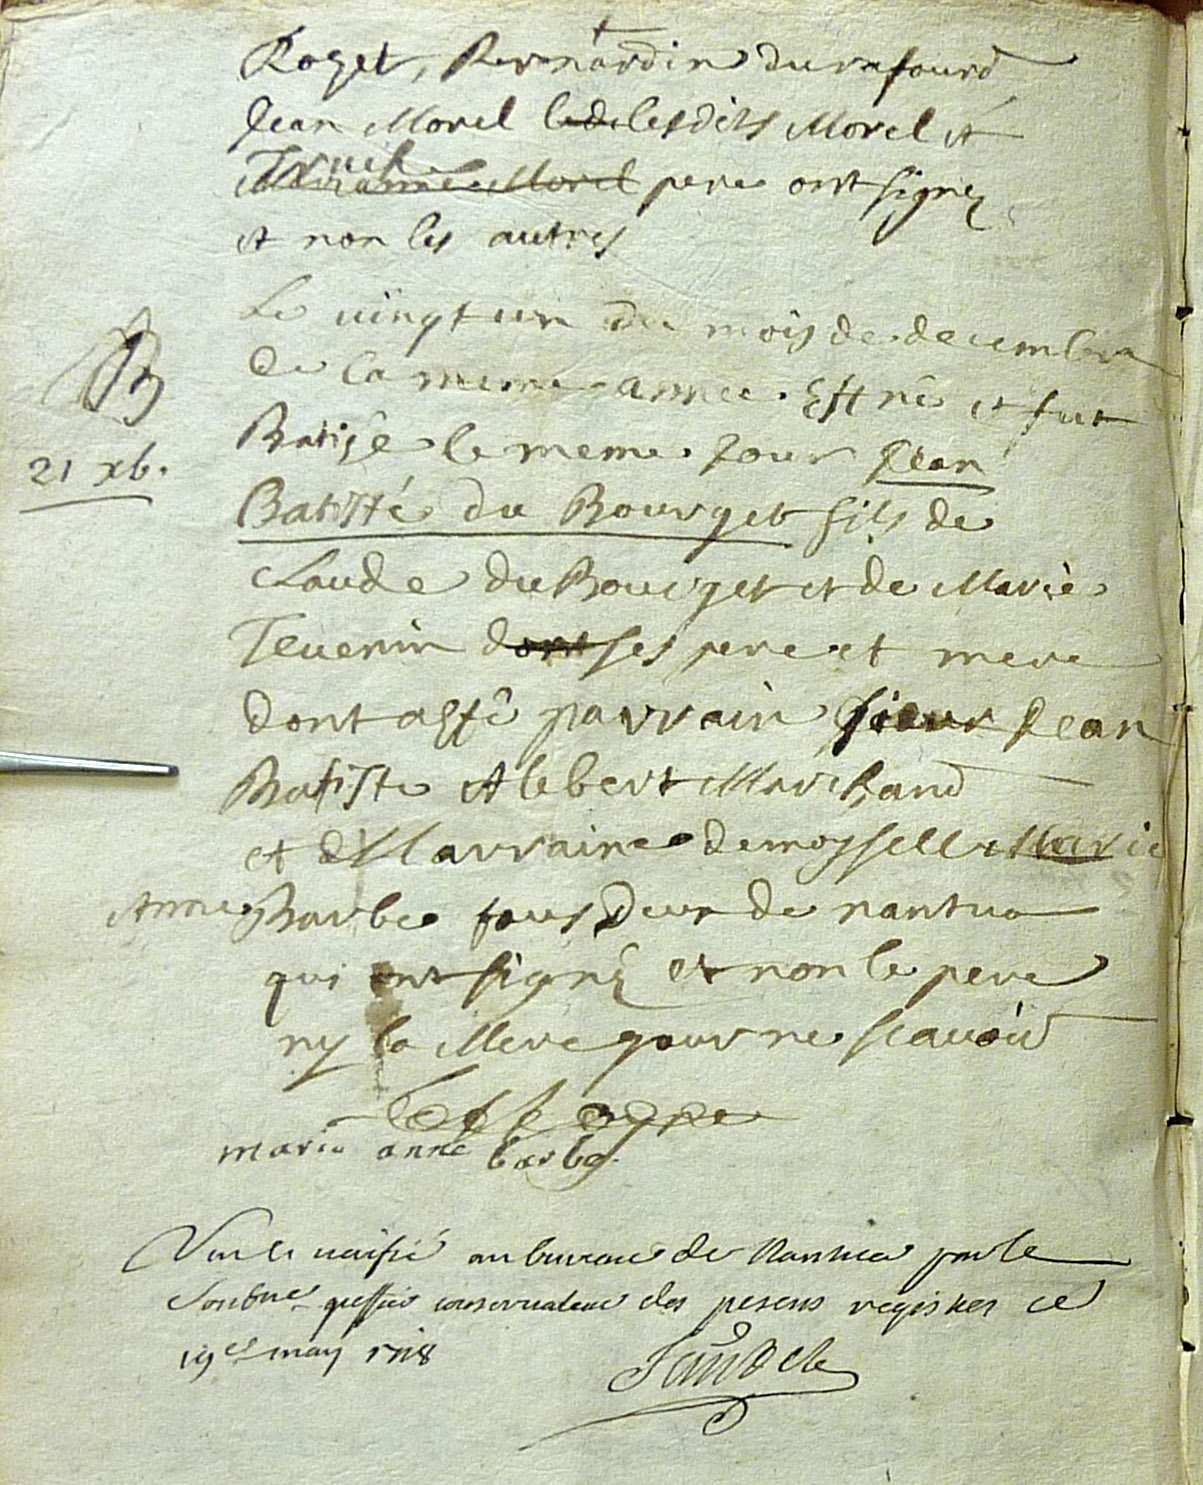 Roget, Bernardin durafourd
Jean Morel lede lesdits Morel et
Truch Morel pere ont signez
et non les autres
Le vingt un du mois de decembre
de la meme annee Est né et fut
B
Batisé le meme jour Jean
21 xb.
Batisté du Bourget fils de
Claude du Bourget et de Marie
Tevenin dont ses pere et mere
dont a esté parrain sieur Jean
Batiste Alebert Marchand
et d Marraine demoyselle Marie
Anne Barbe tous deux de nantua
qui ont signé et non le pere
ny la Mere pour ne scavoir
marie anne barbe
Vu et veriffié au bureau de Nantua par le
Soubne greffier conservateur des presens registres ce
19e may 1718